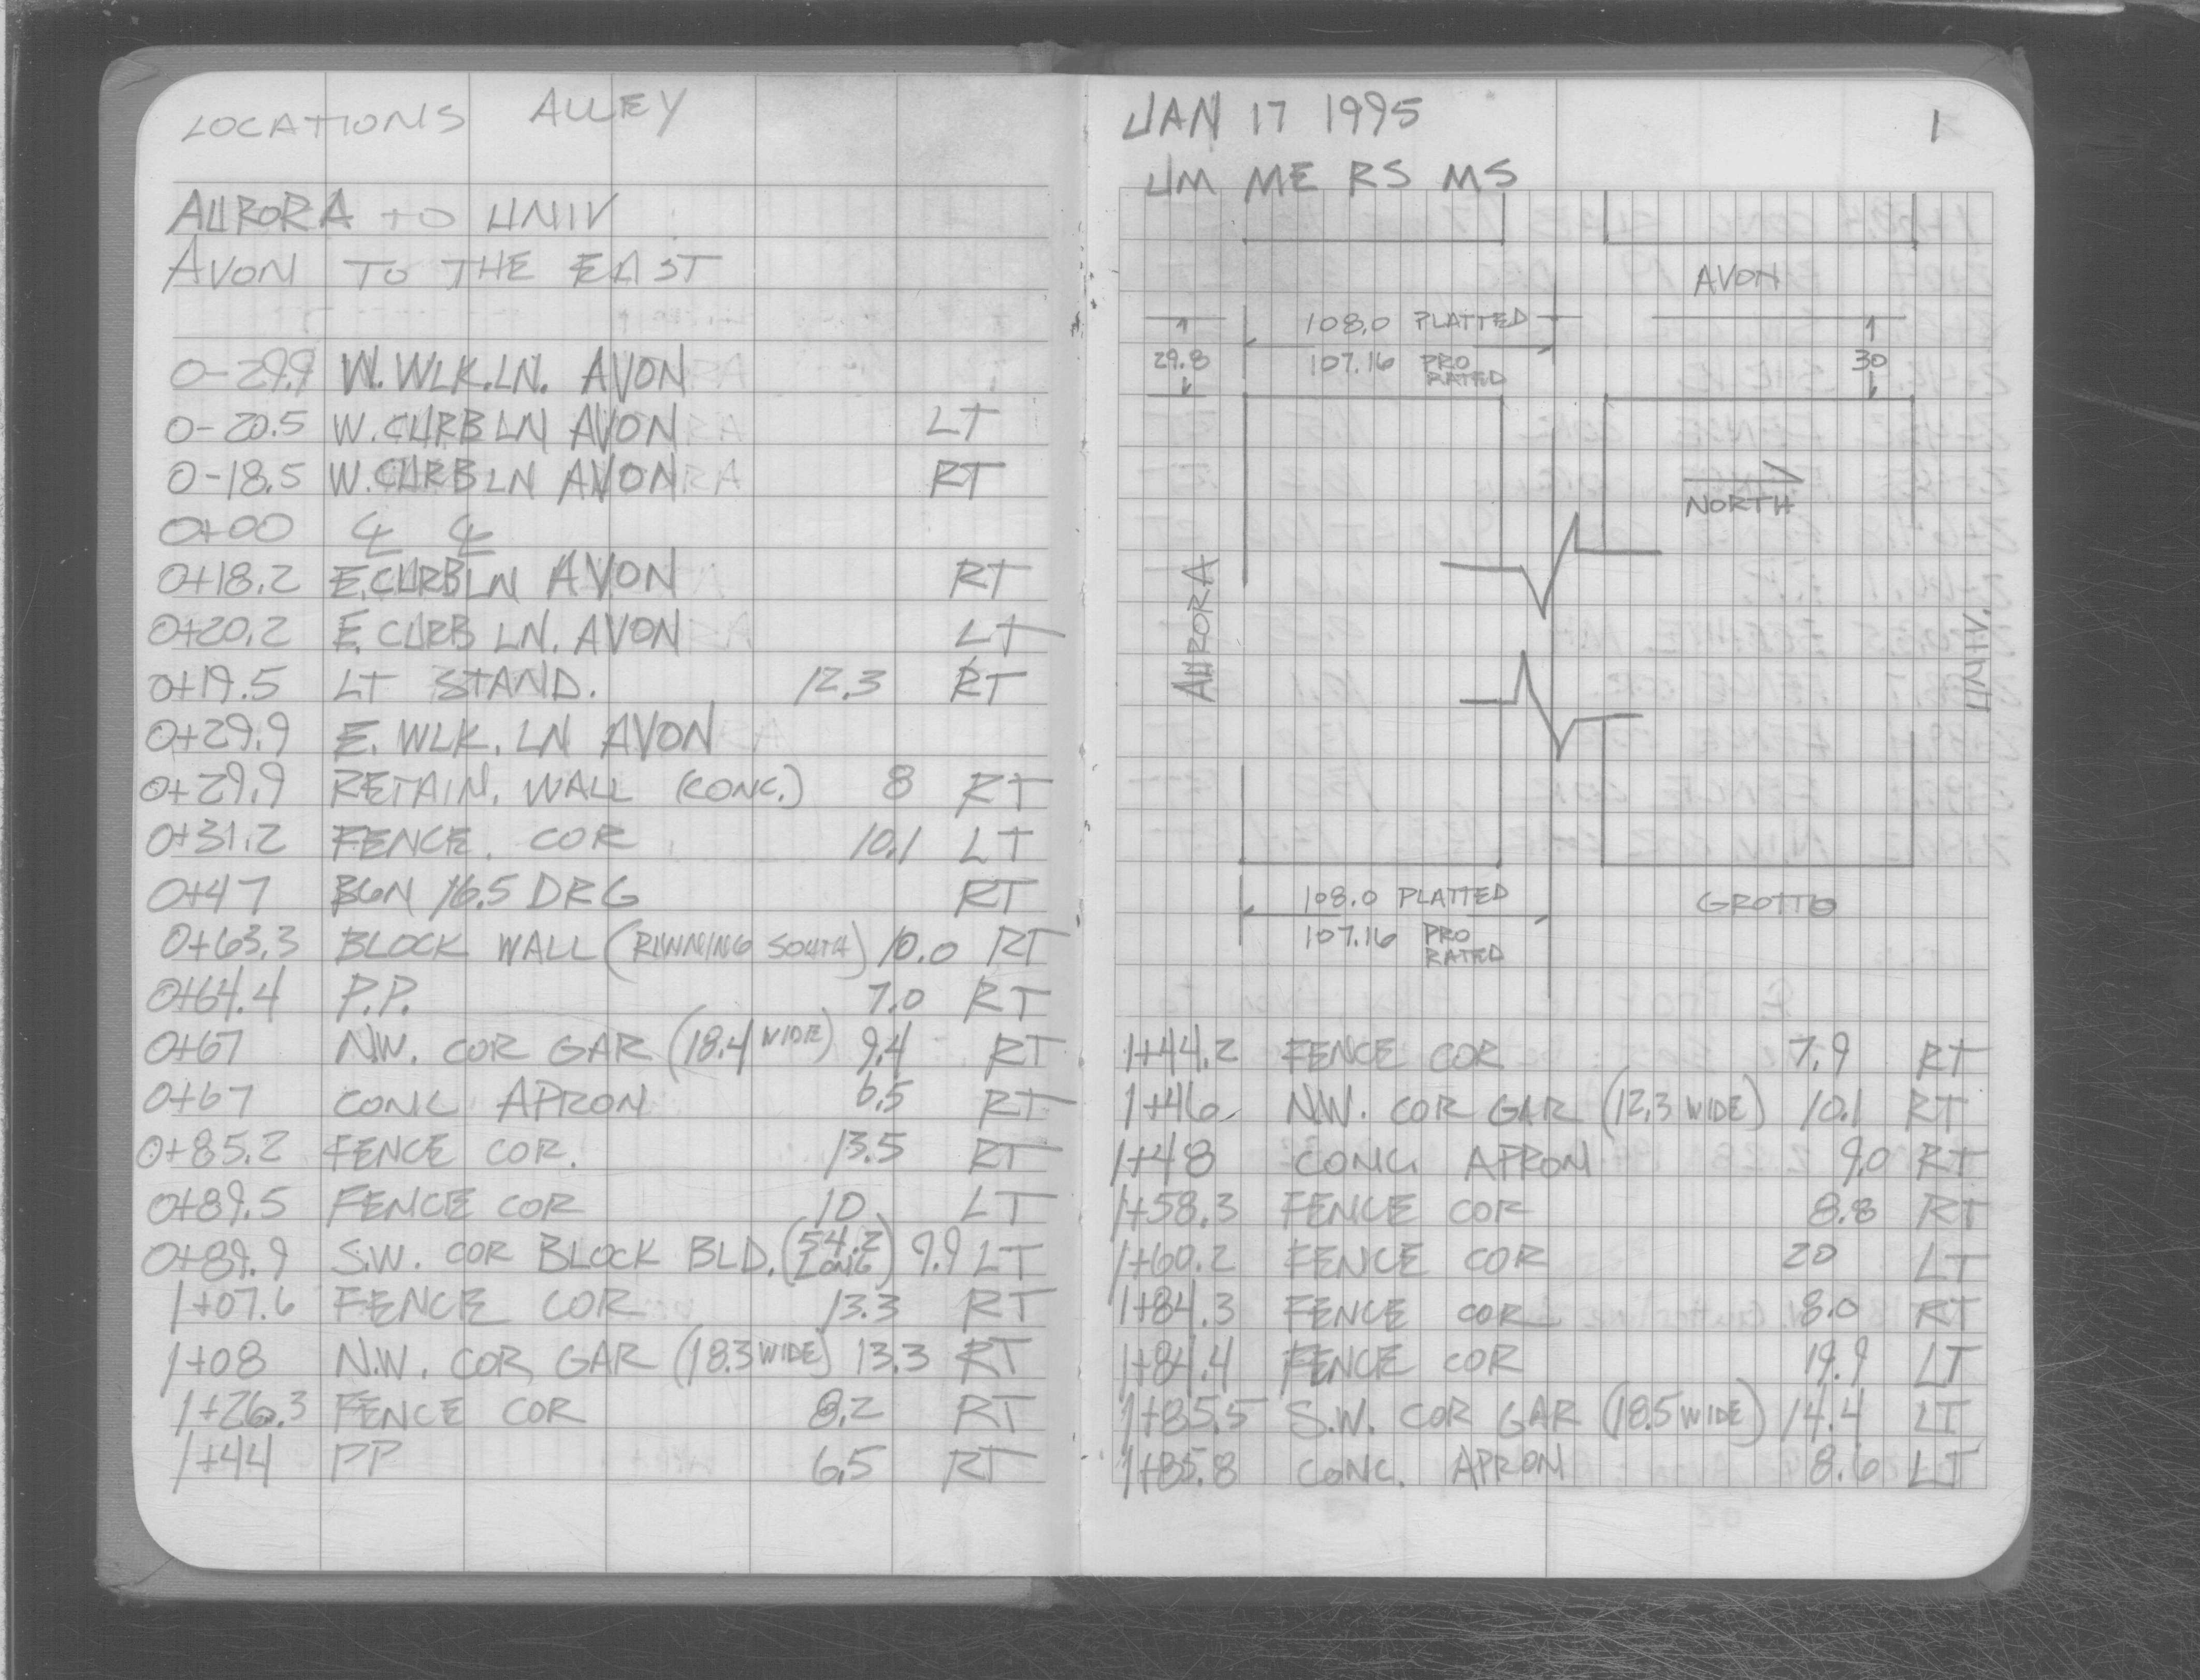 LOCATIONS ALLEY
AURORA TO UNIV
AVON TO THE EAST
0-29.9 W. WLK. LN. AVON
0-20.5 W. CURB LN AVON LT
0-18.5 W. CURB LN AVON RT
0+00 ℄ ℄
0+18.2 E. CURB LN AVON RT
0+20.2 E. CURB LN. AVON LT
0+19.5 LT STAND. 12.3 RT
0+29.9 E. WLK. LN AVON
0+29.9 RETAIN. WALL (CONC.) 8 RT
0+31.2 FENCE. COR 10.1 LT
0+47 BGN 16.5 DRG RT
0+63.3 BLOCK WALL (RUNNING SOUTH) 10.0 RT
0+64.4 P.P. 7.0 RT
0+67 N.W. COR GAR (18.4 WIDE) 9.4 RT
0+67 CONC APRON 6.5 RT
0+85.2 FENCE COR. 13.5 RT
0+89.5 FENCE COR 10 LT
0+89.9 S.W. COR BLOCK BLD. (54.2 LONG) 9.9 LT
1+07.6 FENCE COR 13.3 RT
1+08 N.W. COR GAR (18.3 WIDE) 13.3 RT
1+26.3 FENCE COR 8.2 RT
1+44 PP 6.5 RT
JAN 17 1995 1
JM ME RS MS
AVON
108.0 PLATTED
29.8 107.16 PRO RATED 30
NORTH
AURORA
UNIV.
108.0 PLATTED GROTTO
107.16 PRO RATED
1+44.2 FENCE COR 7.9 RT
1+46 N.W. COR GAR (12.3 WIDE) 10.1 RT
1+48 CONC. APRON 9.0 RT
1+58.3 FENCE COR 8.8 RT
1+60.2 FENCE COR 20 LT
1+84.3 FENCE COR 8.0 RT
1+84.4 FENCE COR 19.9 LT
1+85.5 S.W. COR GAR (18.5 WIDE) 14.4 LT
1+85.8 CONC. APRON 8.6 LT